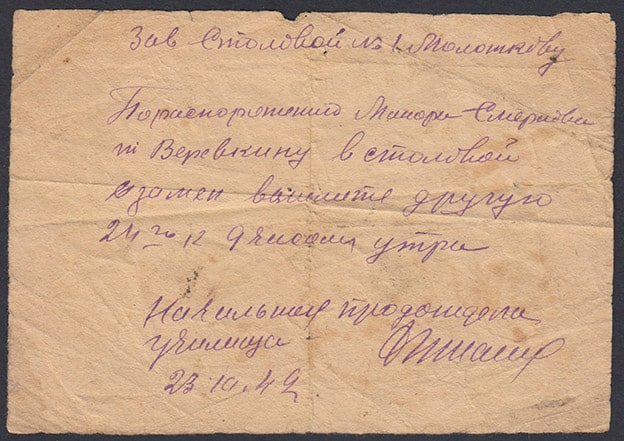 Зав Столовой № 1. Молоткову
По распоряжению Майора
т Веревкину в столовой
взамен вышлите другую
24го к 9 часам утра
Начальник продотдела
училища
23